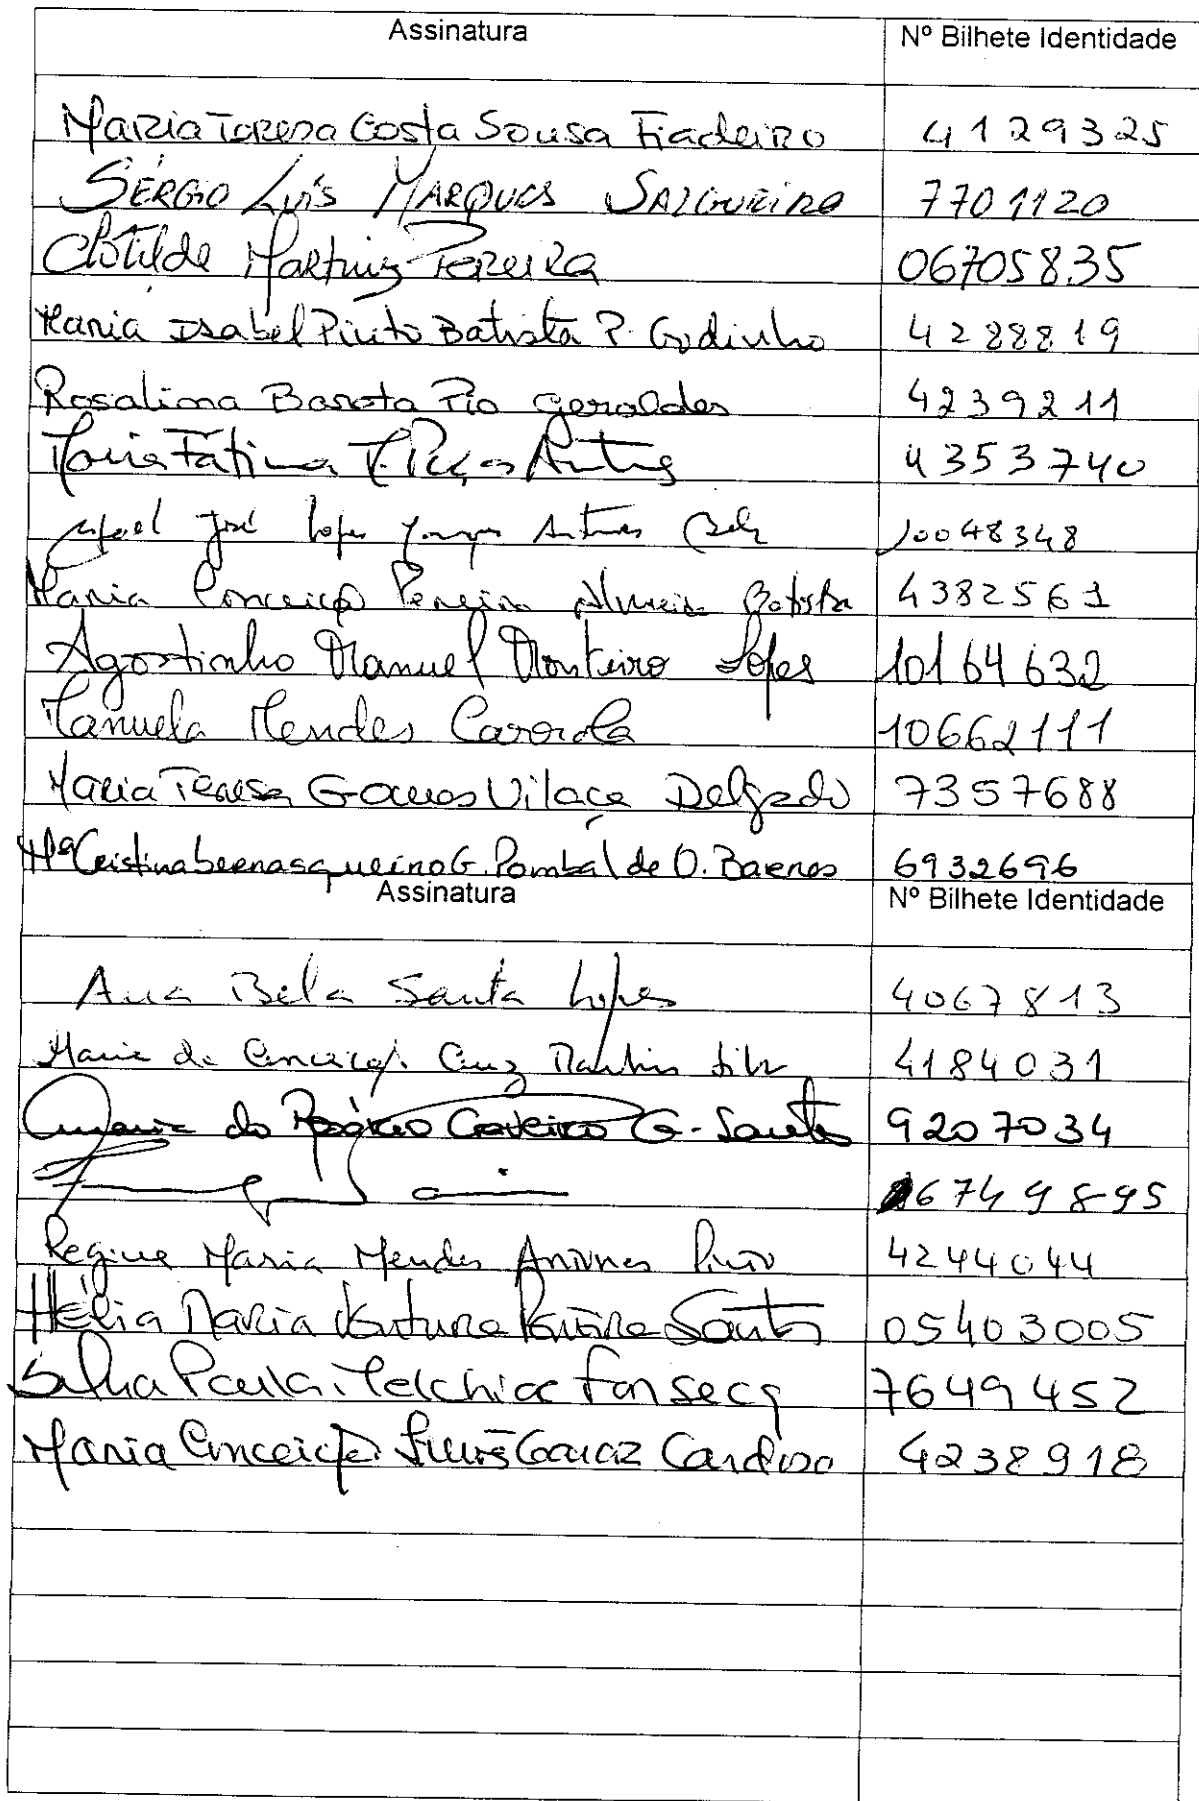 Assinatura Nº Bilhete Identidade
Maria Teresa Costa Sousa Fiadeiro 4129325
SÉRGIO LUÍS MARQUES SALGUEIRO 7701120
Clotilde Martins Pereira 06705835
Maria Isabel Pinto Batista P. Godinho 4288819
Rosalina Barata Pio Geraldes 4239211
Maria Fátima Antunes 4353740
José Lopes Antunes 10048348
Maria Conceição Pereira Almeida Batista 4382561
Agostinho Manuel Monteiro Lopes 10164632
Manuela Mendes Carrola 10662111
Maria Teresa Gomes Vilaça Delgado 7357688
Mª Cristina G. Pombal de O. 6932696
Assinatura Nº Bilhete Identidade
Ana Bela Santa Lopes 4067813
Maria da Conceição Cruz Martins 4184031
Maria do Rosário G. Santos 9207034
6749895
Regina Maria Mendes Antunes Pinto 4244044
Hélia Maria Ventura Santos 05403005
Paula Melchior Fonseca 7649452
Maria Conceição Cardoso 4238918